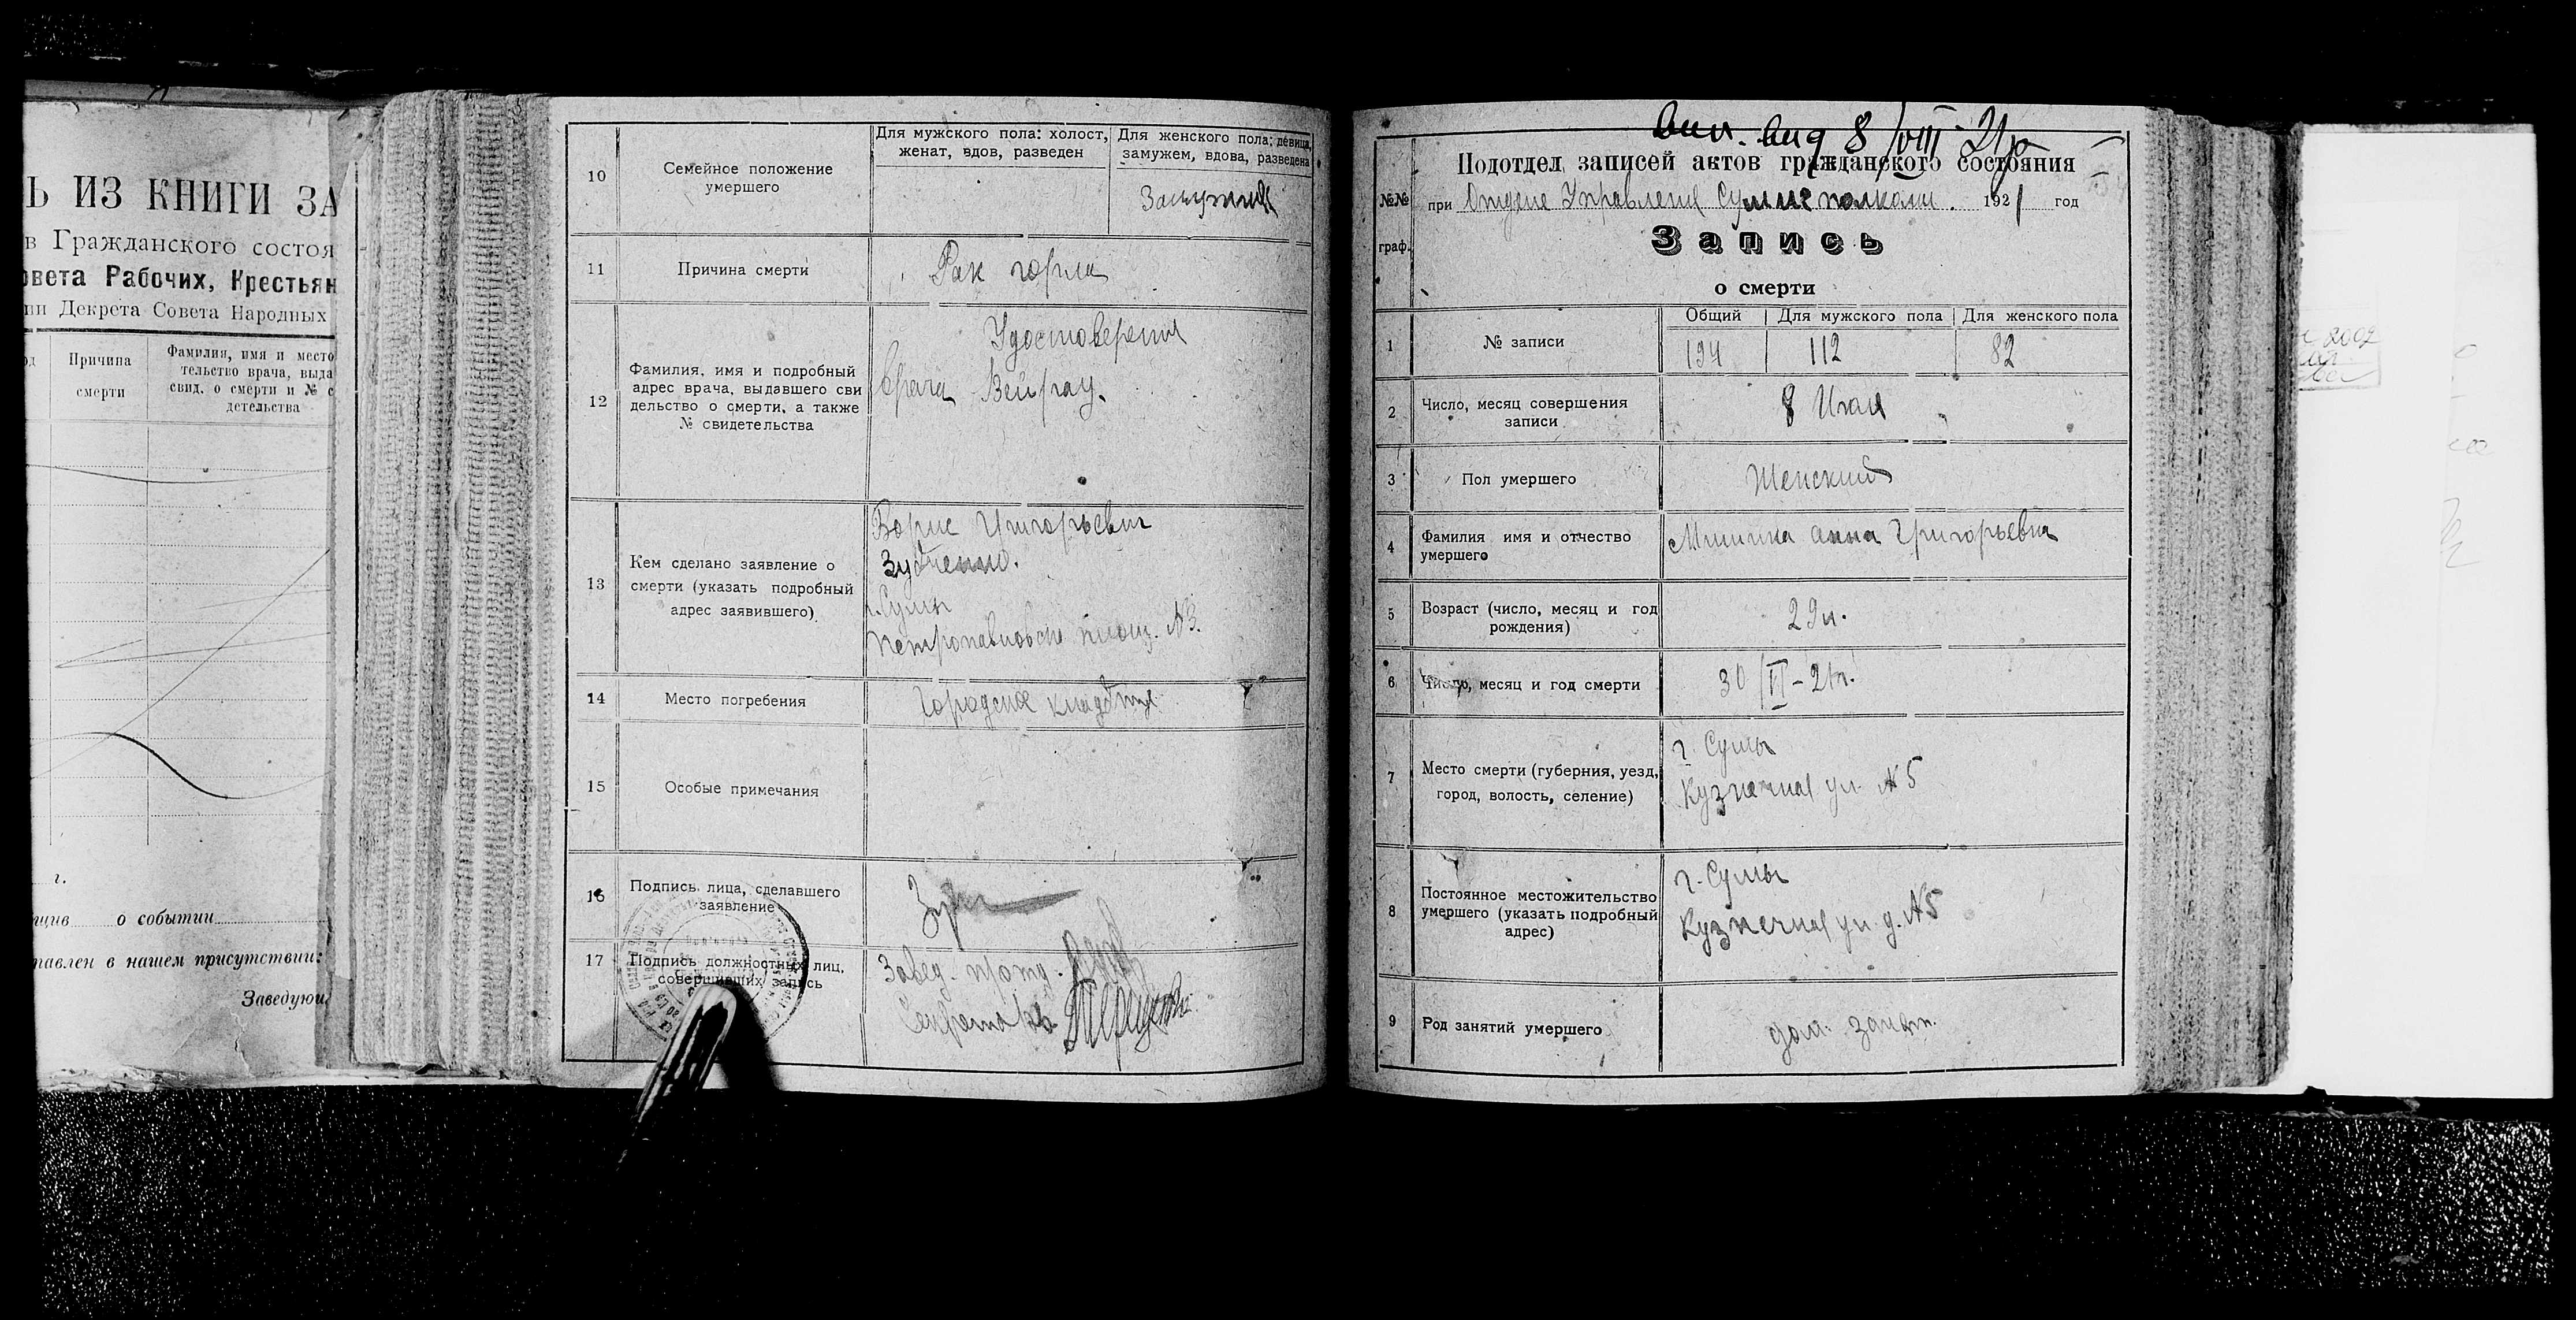 Ь ИЗ КНИГИ ЗА
в Гражданского состоя
овета Рабочих, Крестьян
ии Декрета Совета Народных
Причина
смерти
Фамилия, имя и место
тельство врача, выда
свид. о смерти и № с
детельства
г.
о событии
тавлен в нашем присутствии:
Заведующ
10
Семейное положение
умершего
Для мужского пола: холост,
женат, вдов, разведен
Для женского пола: девица,
замужем, вдова, разведена
Замужняя
11
Причина смерти
Рак горла
12
Фамилия, имя и подробный
адрес врача, выдавшего сви
дельство о смерти, а также
№ свидетельства
Удостоверения
врача
13
Кем сделано заявление о
смерти (указать подробный
адрес заявившего)
Борис Григорьевич
Зубченко.
г. Сумы
Петропавловск площ. №3.
14
Место погребения
Городское кладбище
15
Особые примечания
16
Подпись лица, сделавшего
заявление
17
Подпись должностных лиц,
совершивших запись
Завед.
Секретарь
вид 8/VIII-21г
№№
граф.
Подотдел записей актов гражданского состояния
при Отделе Управления 1921 год
Запись
о смерти
1
№ записи
Общий
Для мужского пола
Для женского пола
194
112
82
2
Число, месяц совершения
записи
8 Июля
3
Пол умершего
Женский
4
Фамилия имя и отчество
умершего
Анна Григорьевна
5
Возраст (число, месяц и год
рождения)
29 л.
6
Число, месяц и год смерти
30/VI-21г.
7
Место смерти (губерния, уезд,
город, волость, селение)
г. Сумы
Кузнечная ул. №5
8
Постоянное местожительство
умершего (указать подробный
адрес)
г. Сумы
Кузнечная ул. д. №5
9
Род занятий умершего
дом. занят.